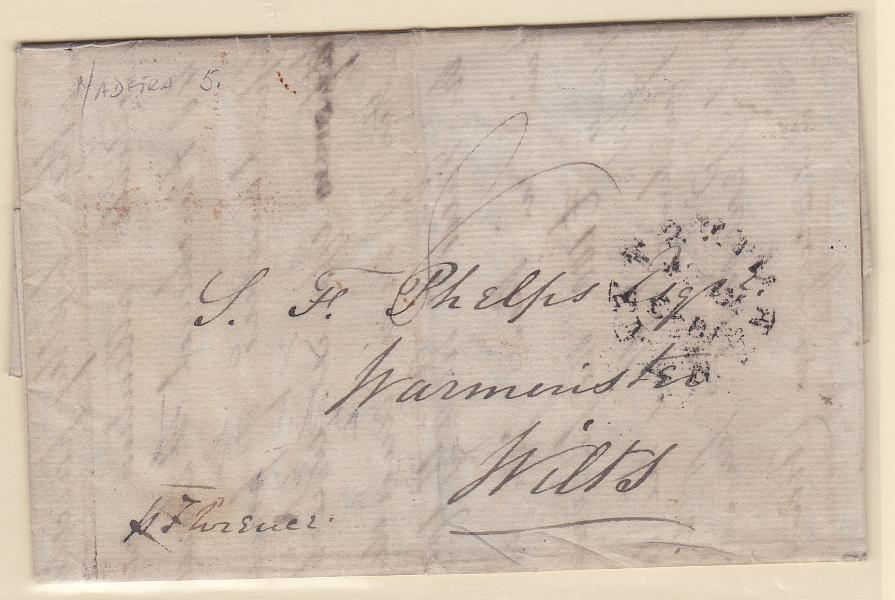 MADEIRA 5.
S. F. Phelps Esqr.
Warminster
Wilts
p Florence.